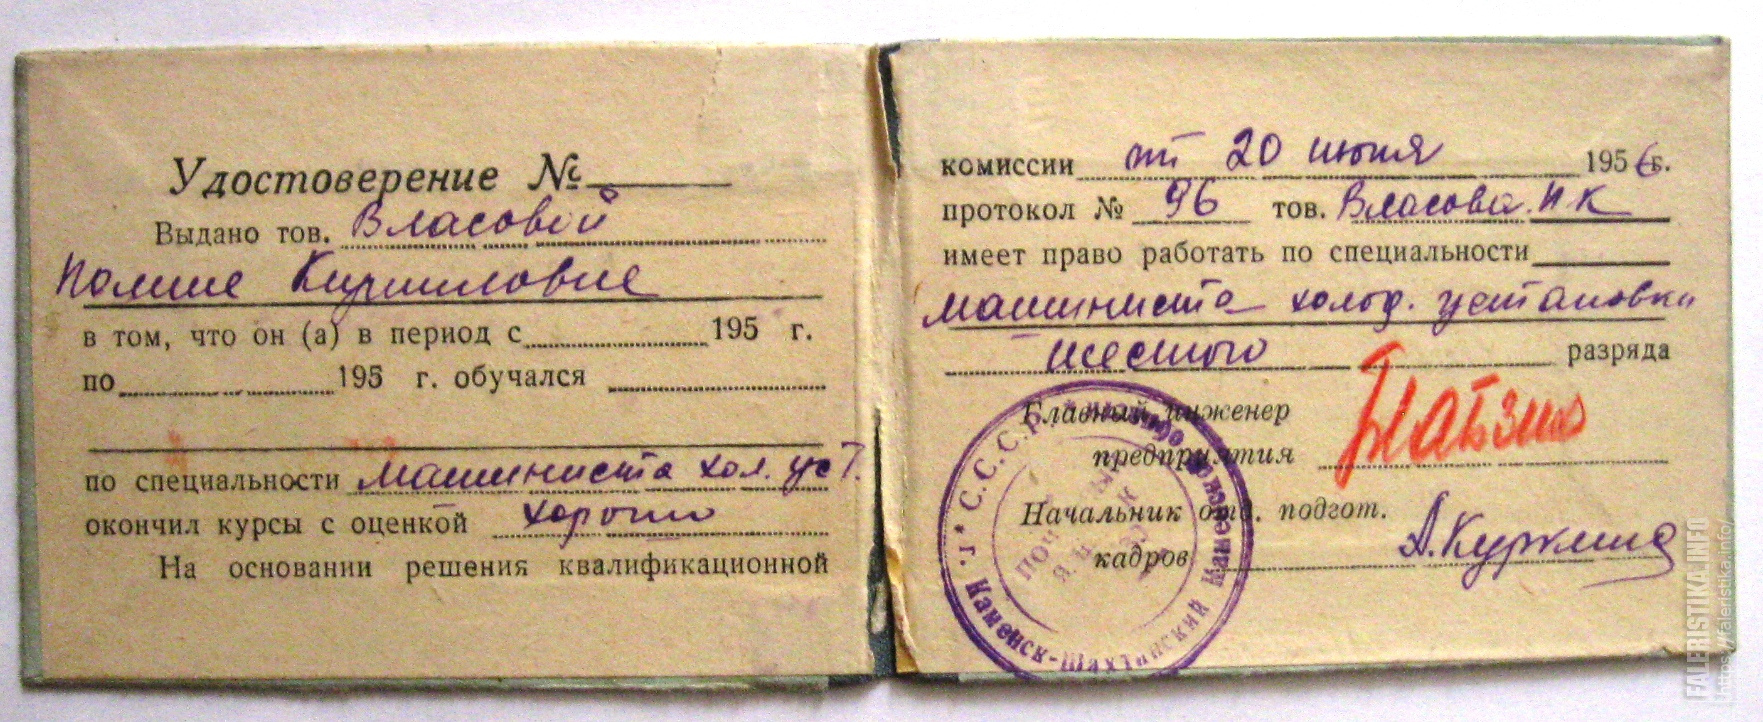 Удостоверение №
Выдано тов. Власовой
Полине Кирилловне
в том, что он (а) в период с 195 г.
по 195 г. обучался
по специальности машиниста хол. уст.
окончил курсы с оценкой хорошо
На основании решения квалификационной
комиссии от 20 июня 1956 г.
протокол № 96 тов. Власова П К
имеет право работать по специальности
машиниста холод. установки
шестого разряда
Главный инженер
предприятия
Начальник отд. подгот.
кадров А. Куркина
г. Каменск-Шахтинский Каменской
С.С.С.Р.
Почтовый
FALERISTIKA.INFO
https://faleristika.info/